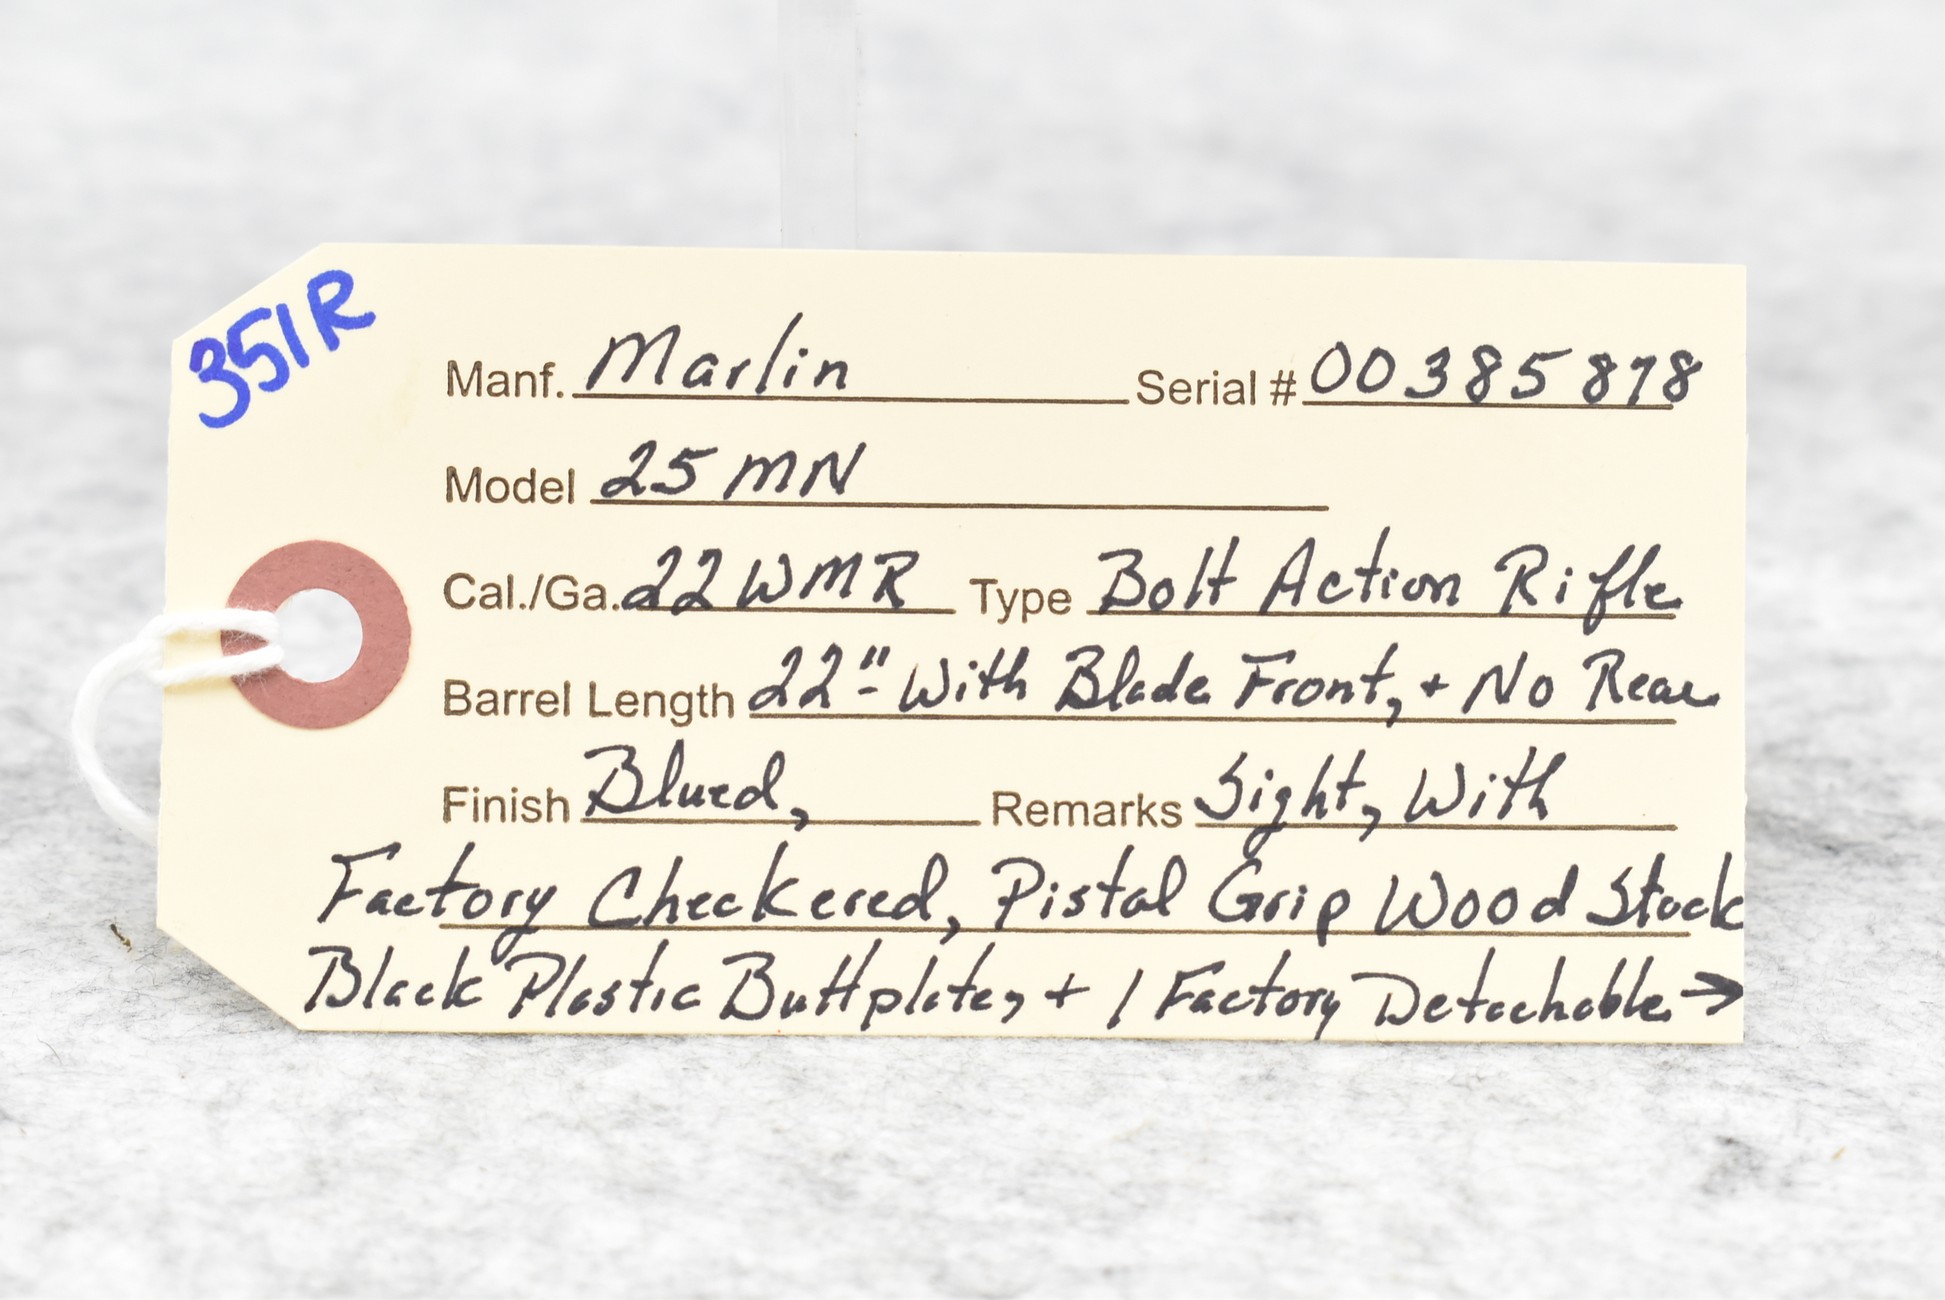 351R
Manf. Marlin Serial # 00385878
Model 25 MN
Cal./Ga. 22 WMR Type Bolt Action Rifle
Barrel Length 22"- With Blade Front, + No Rear
Finish Blued, Remarks Sight, With
Factory Checkered, Pistol Grip Wood Stock
Black Plastic Buttplate, + 1 Factory Detachable →